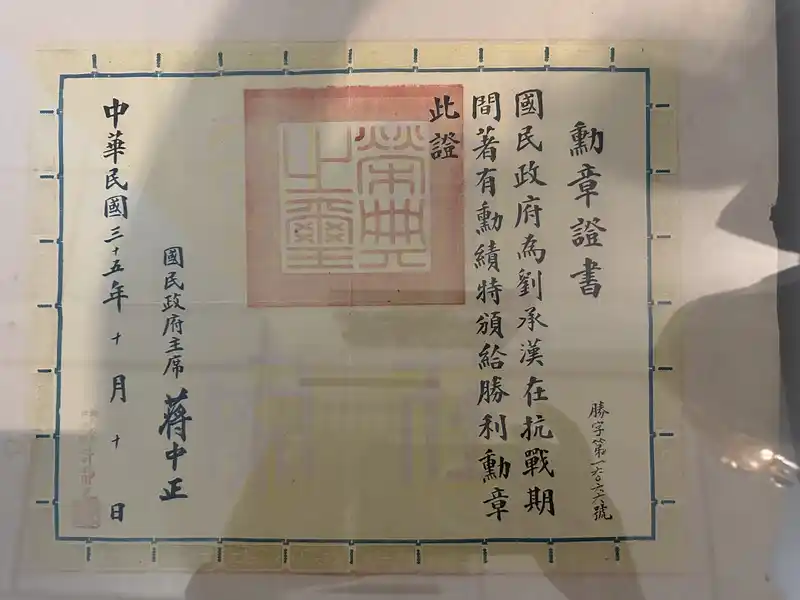 勳章證書
勝字第一六六號
國民政府為劉承漢在抗戰期
間著有勳績特頒給勝利勳章
此證
榮典之璽
國民政府主席 蔣中正
中華民國三十五年十月十日